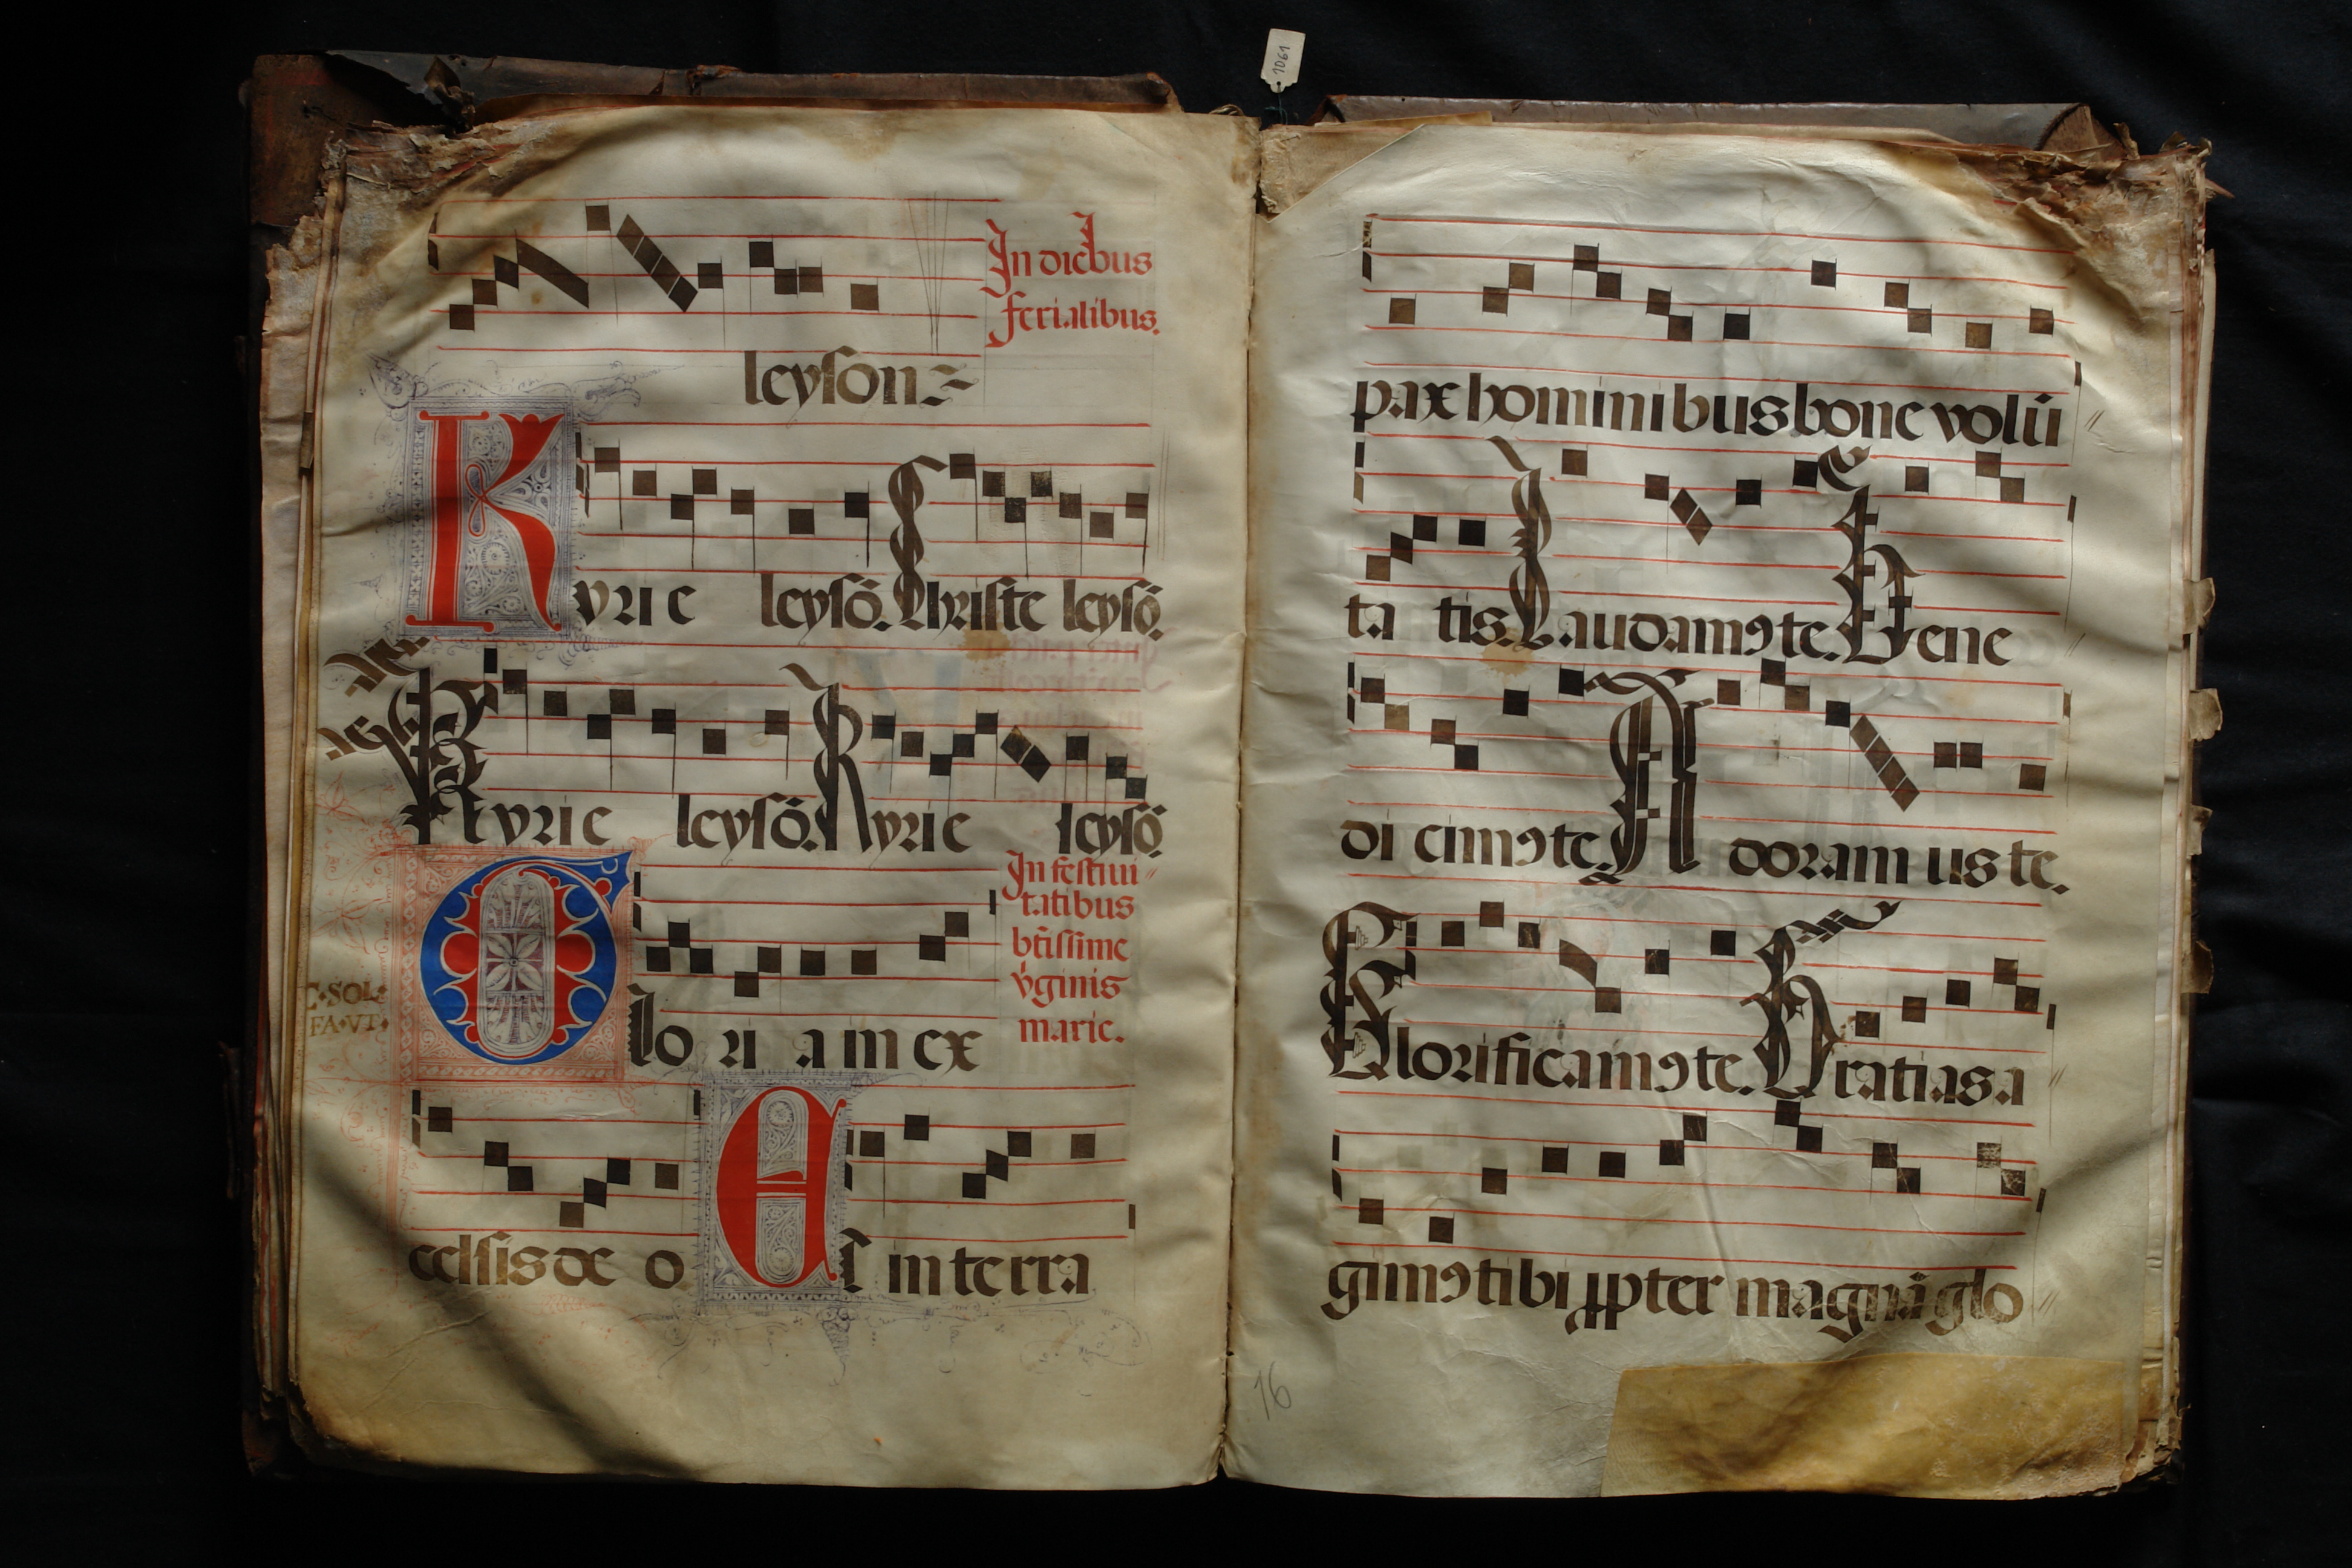 1061
In diebus
ferialibus.
leyson
Kyrie leysō. Christe leysō.
Kyrie leysō. Kyrie leysō.
In festiui
tatibus
bt̄issime
v̄ginis
marie.
C·SOL·
FA·VT·
Glo ri a in ex
celsis de o. Et in terra
pax hominibus bone volū
ta tis. Laudamꝯ te. Bene
di cimꝯ te. Adoram us te.
Glorificamꝯ te. Gratias a
gimꝯ tibi ꝓpter magnā glo
16